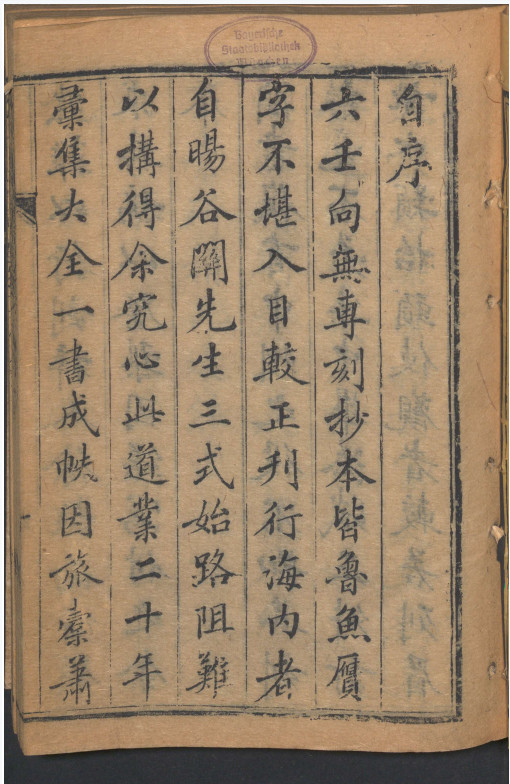 Bayerische
Staatsbibliothek
München
自序
六壬向無專刻抄本皆魯魚贋
字不堪入目較正刊行海内者
自暘谷關先生三式始路阻難
以搆得余究心此道業二十年
彙集大全一書成帙因旅橐蕭